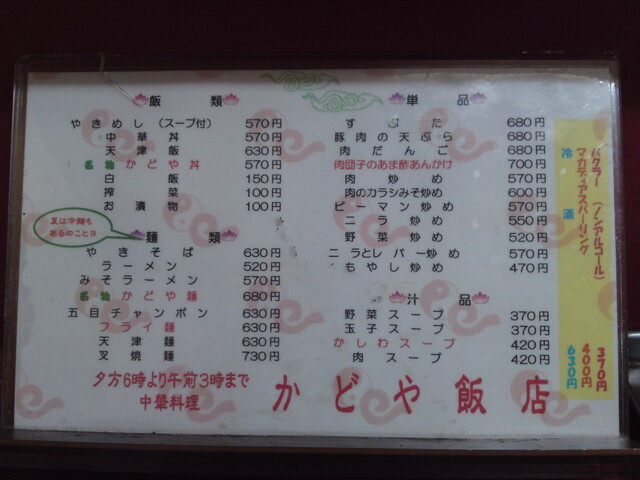 飯類
やきめし（スープ付） 570円
中華丼 570円
天津飯 630円
名物 かどや丼 570円
白飯 150円
搾菜 100円
お漬物 100円
夏は冷麺も
あるのことヨ
麺類
やきそば 630円
ラーメン 520円
みそラーメン 570円
名物 かどや麺 680円
五目チャンポン 630円
フライ麺 630円
天津麺 630円
叉焼麺 730円
単品
すぶた 680円
豚肉の天ぷら 680円
肉だんご 680円
肉団子のあま酢あんかけ 700円
肉炒め 570円
肉のカラシみそ炒め 600円
ピーマン炒め 570円
ニラ炒め 550円
野菜炒め 520円
ニラとレバー炒め 570円
もやし炒め 470円
汁品
野菜スープ 370円
玉子スープ 370円
かしわスープ 420円
肉スープ 420円
バクラー（ノンアルコール） 370円
マカディアスパーリング 400円
冷酒 630円
夕方6時より午前3時まで
中華料理
かどや飯店